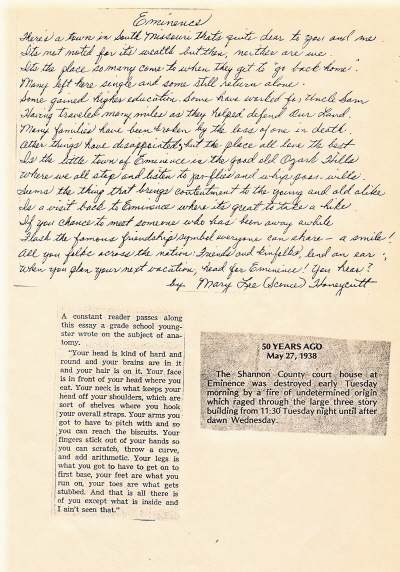 Eminence
There's a town in South Missouri that's quite dear to you and me
Its not noted for its wealth but then, neither are we.
Its the place so many come to when they get to "go back home".
Many left here single and some still return alone.
Some gained higher education. Some have worked for Uncle Sam
Having traveled many miles as they helped defend Our Land.
Many families have been broken by the loss of one in death.
Other things have disappointed, but the place all love the best
Is the little town of Eminence in the good old Ozark Hills
Where we all stop and listen to jar-flies and whip-poor-wills.
Seems the thing that brings contentment to the young and old alike
Is a visit back to Eminence where its great to take a hike
If you chance to meet someone who has been away awhile
Flash the famous friendship symbol everyone can share - a smile!
All you folks across the nation: Friends and kinfolks, lend an ear;
When you plan your next vacation, head for Eminence! You hear?
by Mary Lee (Scence) Honeycutt
A constant reader passes along
this essay a grade school young-
ster wrote on the subject of ana-
tomy.
"Your head is kind of hard and
round and your brains are in it
and your hair is on it. Your face
is in front of your head where you
eat. Your neck is what keeps your
head off your shoulders, which are
sort of shelves where you hook
your overall straps. Your arms you
got to have to pitch with and so
you can reach the biscuits. Your
fingers stick out of your hands so
you can scratch, throw a curve,
and add arithmetic. Your legs is
what you got to have to get on to
first base, your feet are what you
run on, your toes are what gets
stubbed. And that is all there is
of you except what is inside and
I ain't seen that."
50 YEARS AGO
May 27, 1938
The Shannon County court house at
Eminence was destroyed early Tuesday
morning by a fire of undetermined origin
which raged through the large three story
building from 11:30 Tuesday night until after
dawn Wednesday.